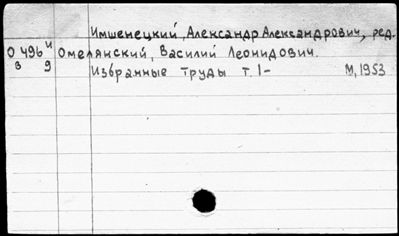 Имшенецкий, Александр Александрович, ред.
О 496 и Омелянский, Василий Леонидович.
в 9 Избранные труды т. 1- М, 1953